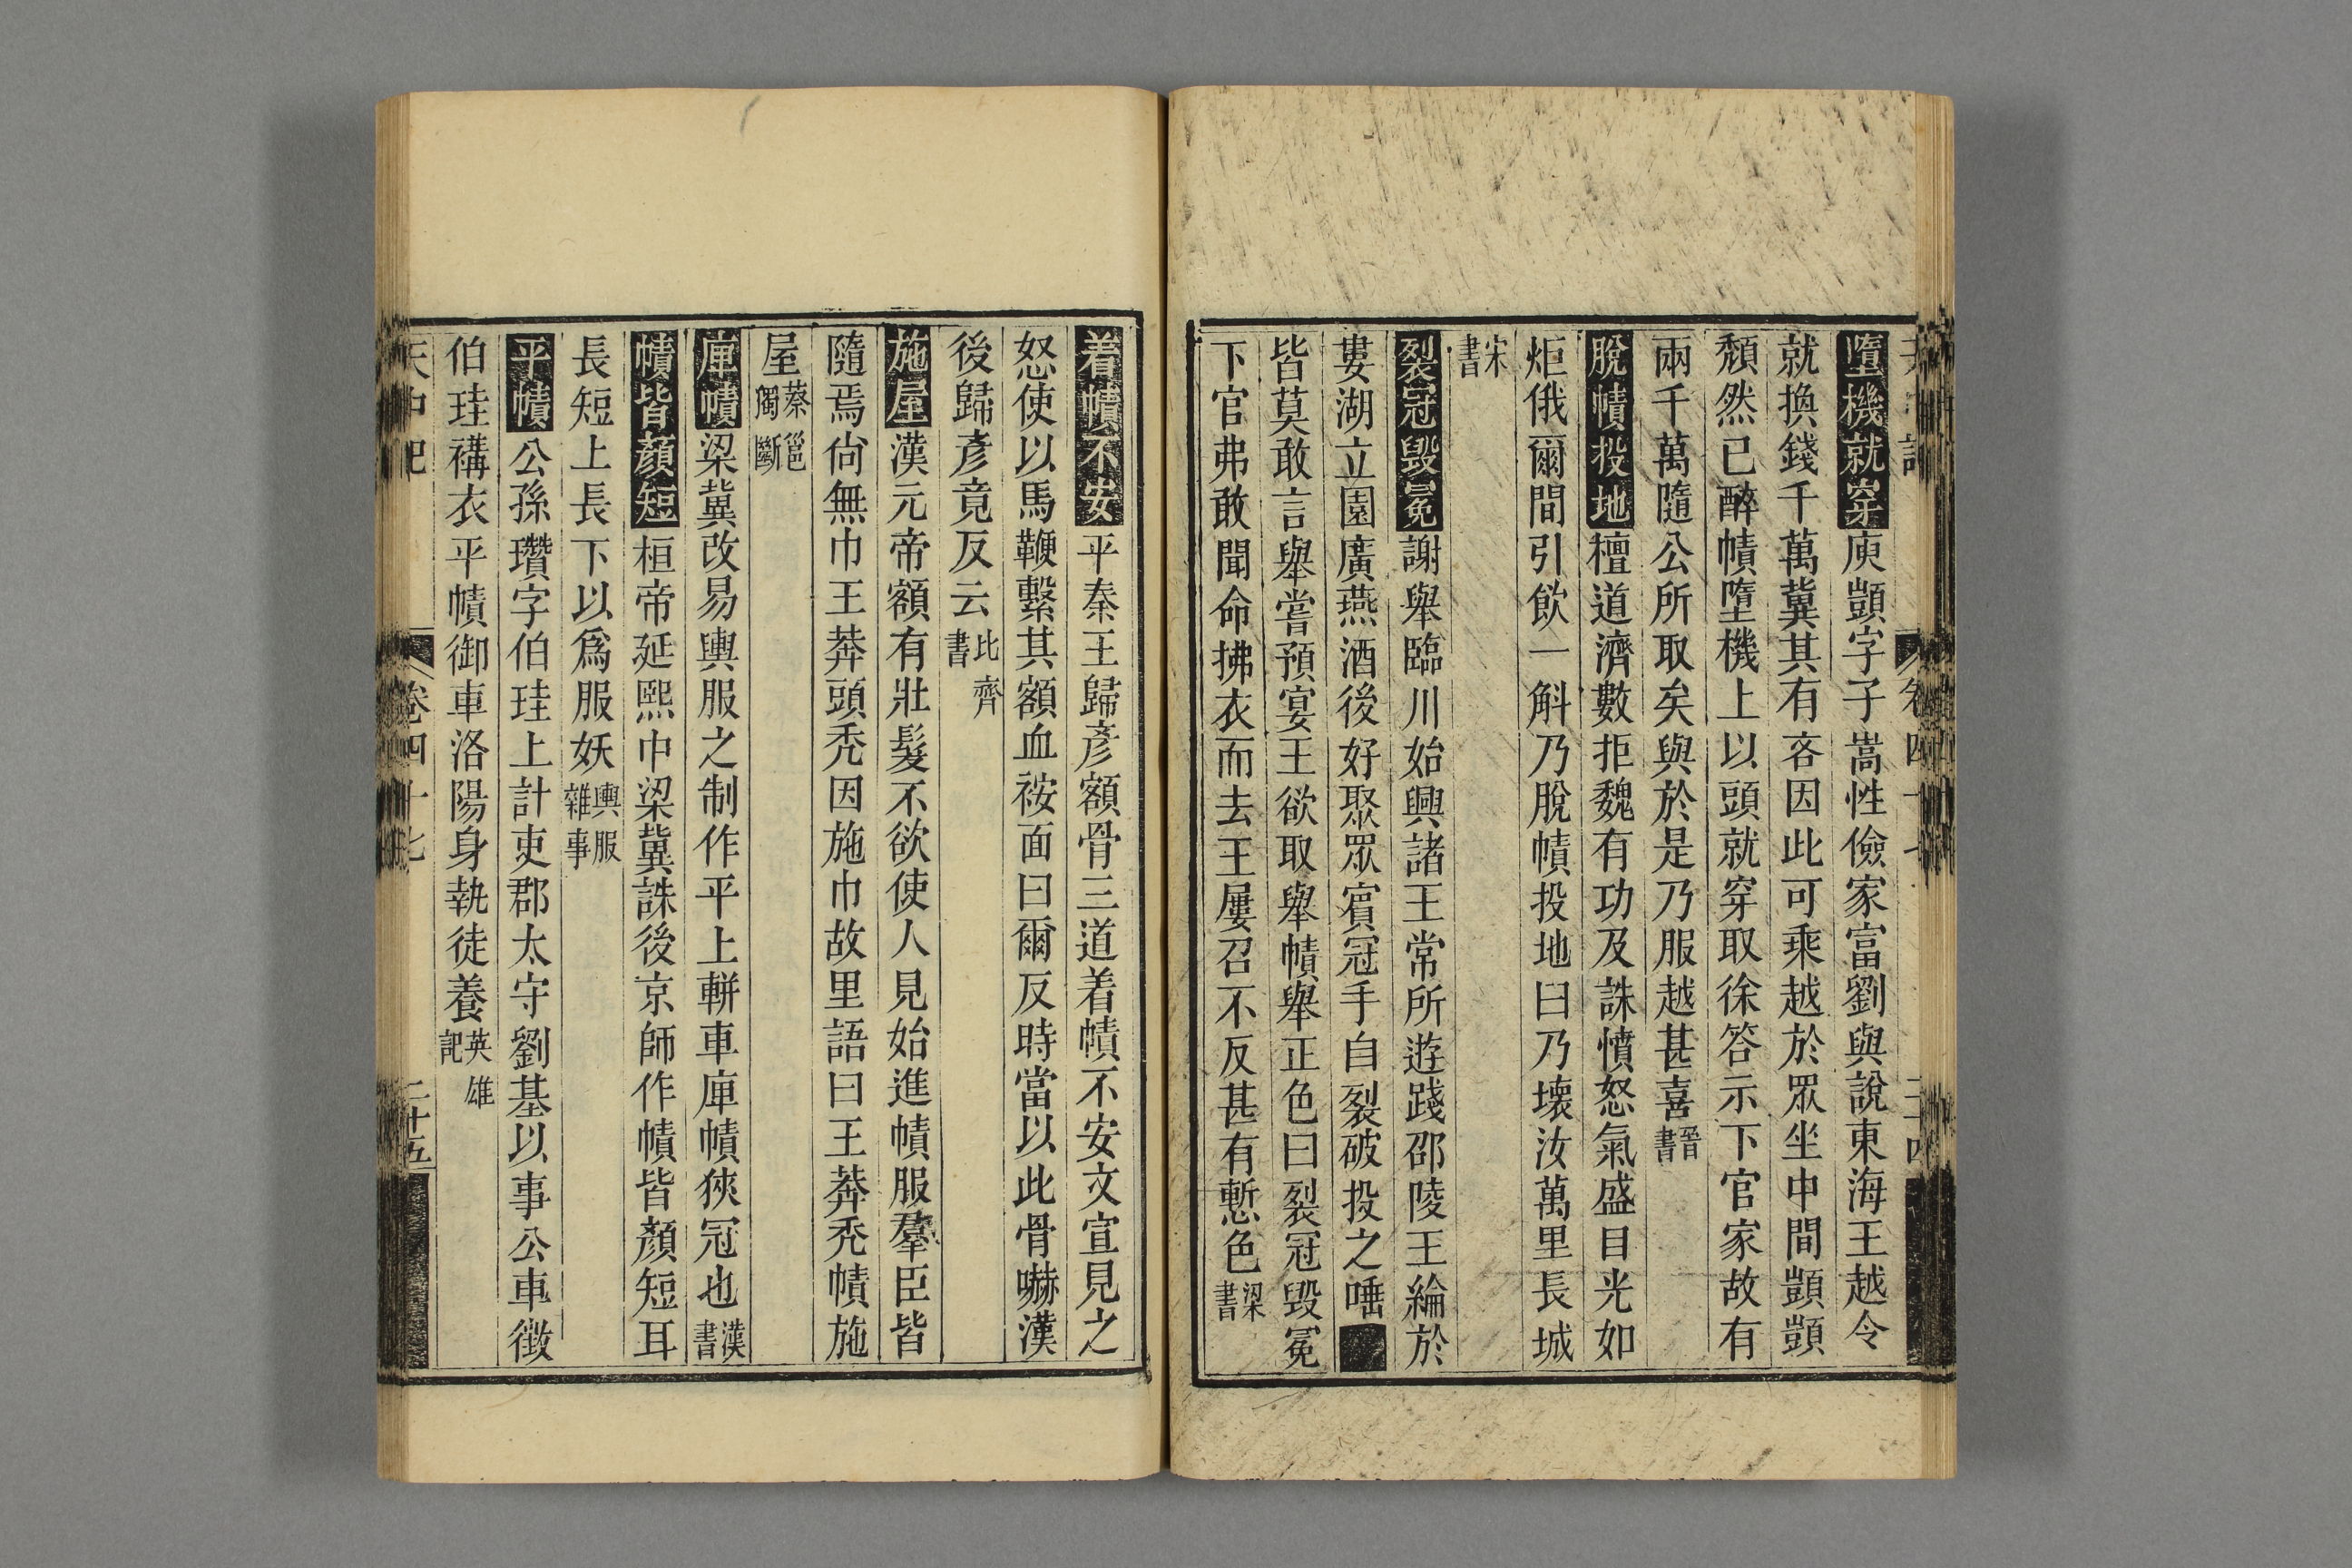 墮機就穿庾顗字子嵩性儉家富劉與說東海王越令
就換錢千萬冀其有吝因此可乘越於眾坐中間顗顗
頽然已醉幘墮機上以頭就穿取徐答示下官家故有
兩千萬隨公所取矣與於是乃服越甚喜晉書
脫幘投地檀道濟數拒魏有功及誅憤怒氣盛目光如
炬俄爾間引飲一斛乃脫幘投地曰乃壞汝萬里長城
宋書
裂冠毀冕謝舉臨川始興諸王常所遊踐邵陵王綸於
婁湖立園廣燕酒後好聚眾賓冠手自裂破投之唾
皆莫敢言舉嘗預宴王欲取舉幘舉正色曰裂冠毀冕
下官弗敢聞命拂衣而去王屢召不反甚有慙色梁書
着幘不安平秦王歸彥額骨三道着幘不安文宣見之
怒使以馬鞭繫其額血袚面曰爾反時當以此骨嚇漢
後歸彥竟反云比齊書
施屋漢元帝額有壯髮不欲使人見始進幘服羣臣皆
隨焉尙無巾王莽頭禿因施巾故里語曰王莽禿幘施
屋蔡邕獨斷
庳幘梁冀改易輿服之制作平上軿車庳幘狹冠也漢書
幘皆顏短桓帝延熙中梁冀誅後京師作幘皆顏短耳
長短上長下以爲服妖輿服雜事
平幘公孫瓚字伯珪上計吏郡太守劉基以事公車徵
伯珪褠衣平幘御車洛陽身執徒養英雄記
天中記 卷四十七 二十五